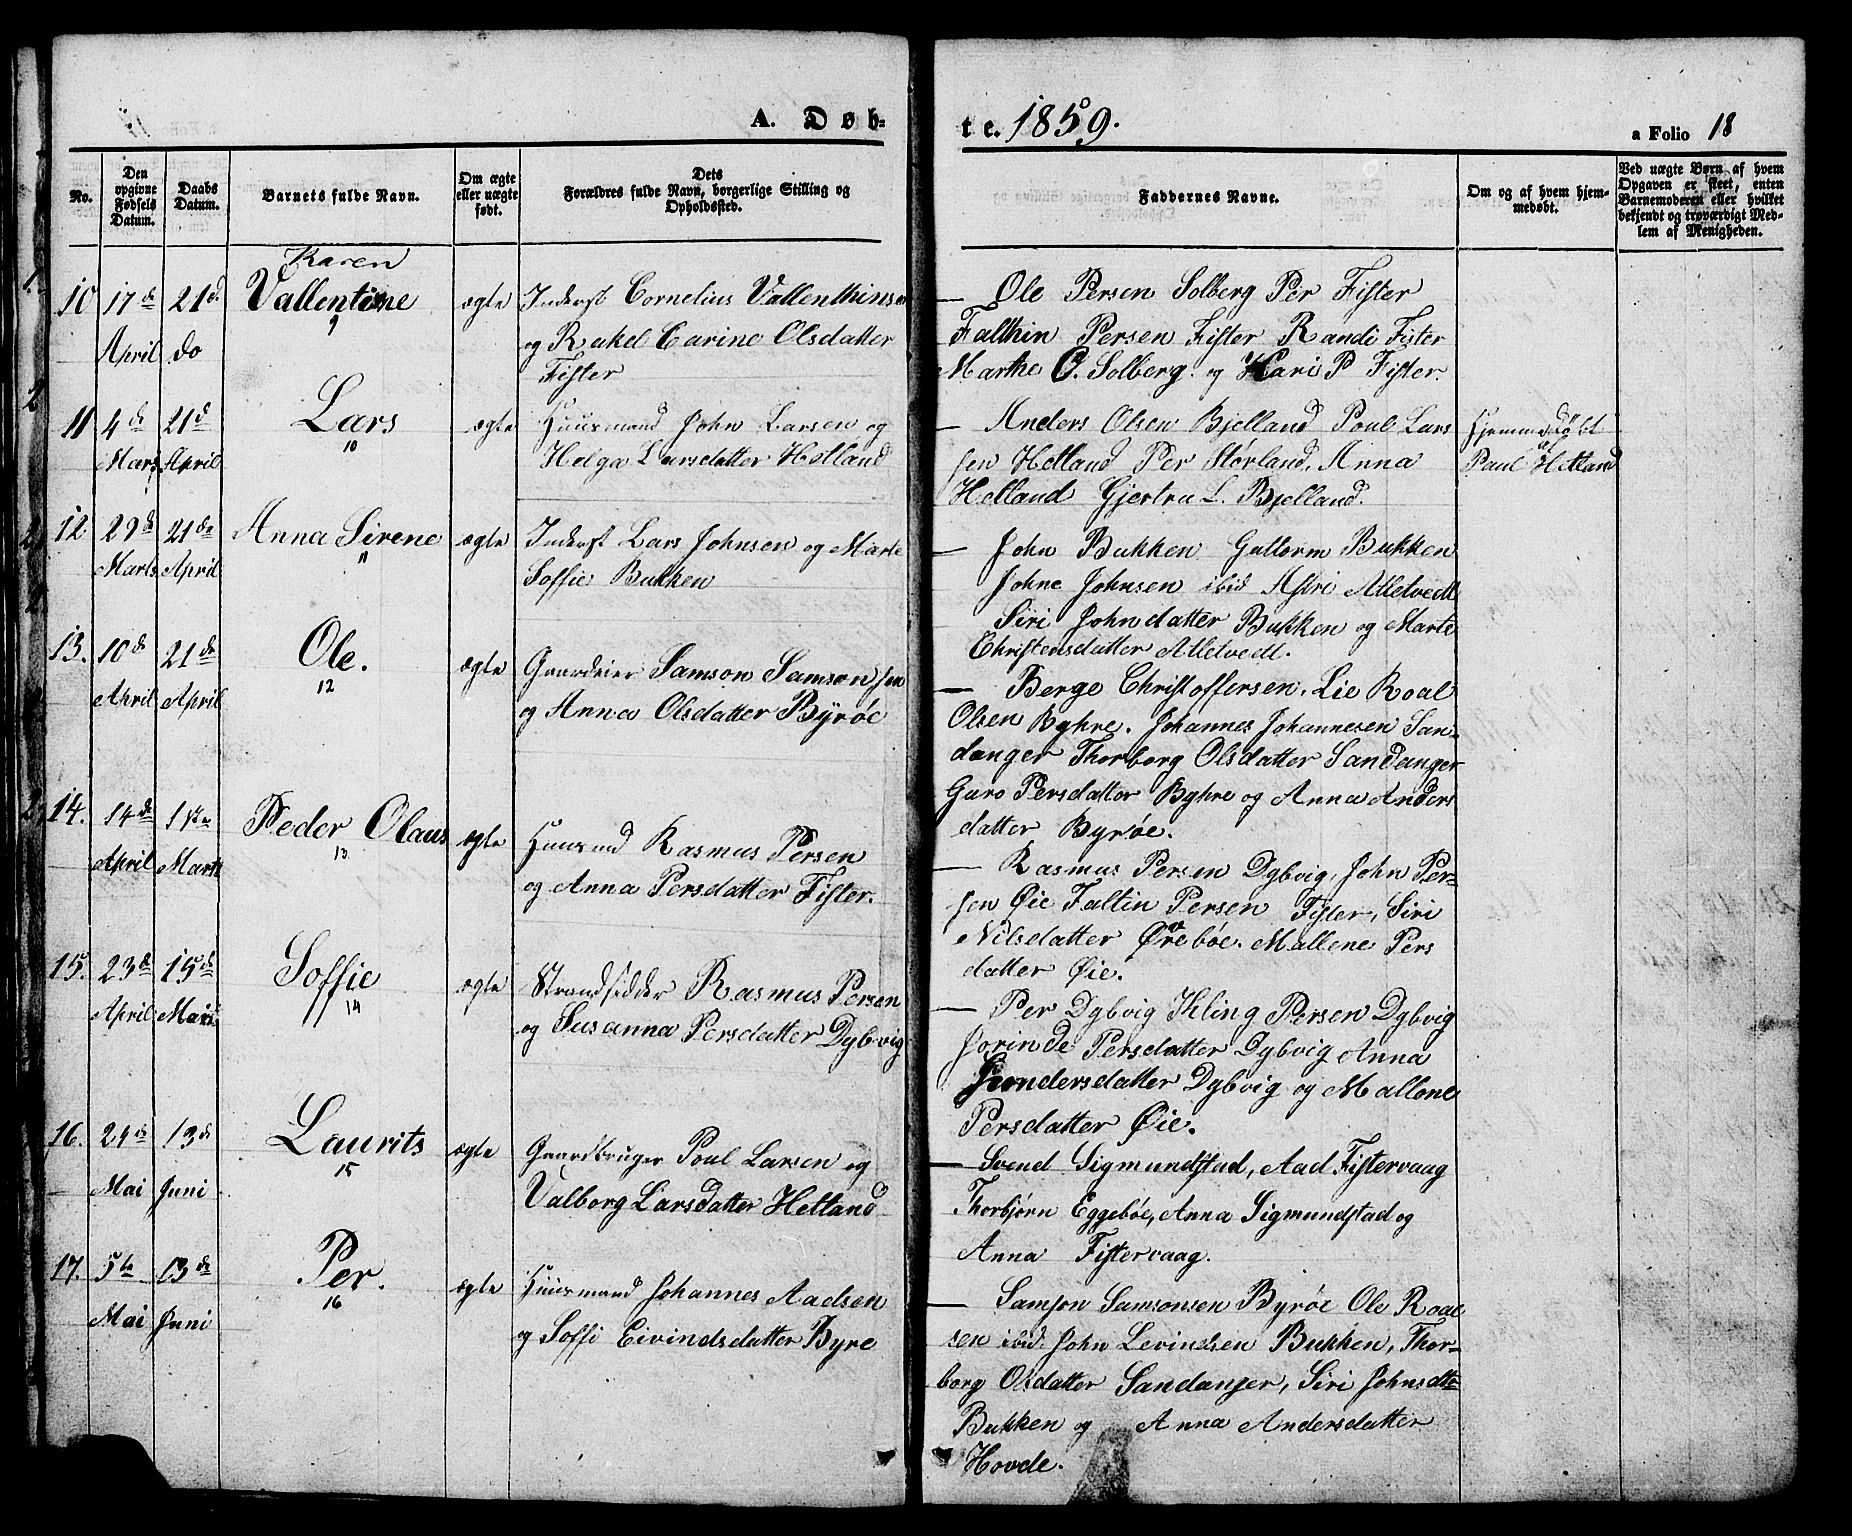 A. Døb=
te. 1859.
a Folio 18
No.
Den opgivne Fødsels Datum.
Daabs Datum.
Barnets fulde Navn.
Om ægte eller uægte født.
Dets Forældres fulde Navn, borgerlige Stilling og Opholdssted.
Faddernes Navne.
Om og af hvem hjemmedøbt.
Ved uægte Børn af hvem Opgaven er skeet, enten Barnemoderen eller hvilket bekjendt og troværdigt Medlem af Menigheden.
10 17de April
21d. do
Karen
Vallentine
9
ægte
Inderst Cornelius Vallenthinsen
og Rakel Carine Olsdatter
Fister
— Ole Persen Solberg Per Fister
Falthin Persen Fister Randi Fister
Marthe O. Solberg. og Kari P Fister.
11 4de Marts
21d April
Lars
10
ægte
Huusmand John Larsen og
Helga Larsdatter Hetland
— Anders Olsen Bjelland Poul Lars
sen Hetland Per Størland, Anna
Hetland Gjertru L. Bjelland.
Hjemmedøbt
af
Paul Hetland
12 29de Marts
21de April
Anna Sirene
11
ægte
Inderst Lars Johnsen og Marte
Soffie Bukken
— John Bukken Guttorm Bukken
Johne Johnsen ibid Astri Alletvedt
Siri Johndatter Bukken og Marte
Christensdatter Alletvedt.
13. 10de April
21de April
Ole.
12
ægte
Gaardeier Samson Samsonsen
og Anna Olsdatter Byrøe
— Berge Christoffersen, Lie Roal
Olsen Byhre. Johannes Johannesen San=
danger Thorborg Olsdatter Sandanger
Guro Persdatter Byhre og Anna Anders
datter Byrøe.
14. 14de April
1ste Marts
Peder Olaus
13
ægte
Huusmd Rasmus Persen
og Anna Persdatter Fister.
— Rasmus Persen Dybvig, John Per=
sen Øie Faltin Persen Fister, Siri
Nilsdatter Ørebøe. Mallene Pers
datter Øie.
15. 23de April
15de
Soffie
14
ægte
Strandsidder Rasmus Persen
og Susanna Persdatter Dybvig
— Per Dybvig Ihling Persen Dybvig
Jorinde Persdatter Dybvig Anna
Gundersdatter Dybvig og Mallene
Persdatter Øie.
16. 24de Mai
13de Juni
Laurits
15
ægte
Gaardbruger Poul Larsen og
Valborg Larsdatter Hetland
— Svend Sigmundstad, Aad Fistervaag
Thorbjørn Eggebøe, Anna Sigmundstad og
Anna Fistervaag.
17. 5te Mai
13de Juni
Per.
16
ægte
Huusmand Johannes Aadsen
og Soffi Eivindsdatter Byre
— Samson Samsonsen Byrøe Ole Roal
sen ibid. John Levindsen Bukken, Thor=
borg Olsdatter Sandanger, Siri Johnsdtr
Bukken og Anna Andersdatter
Hovde.